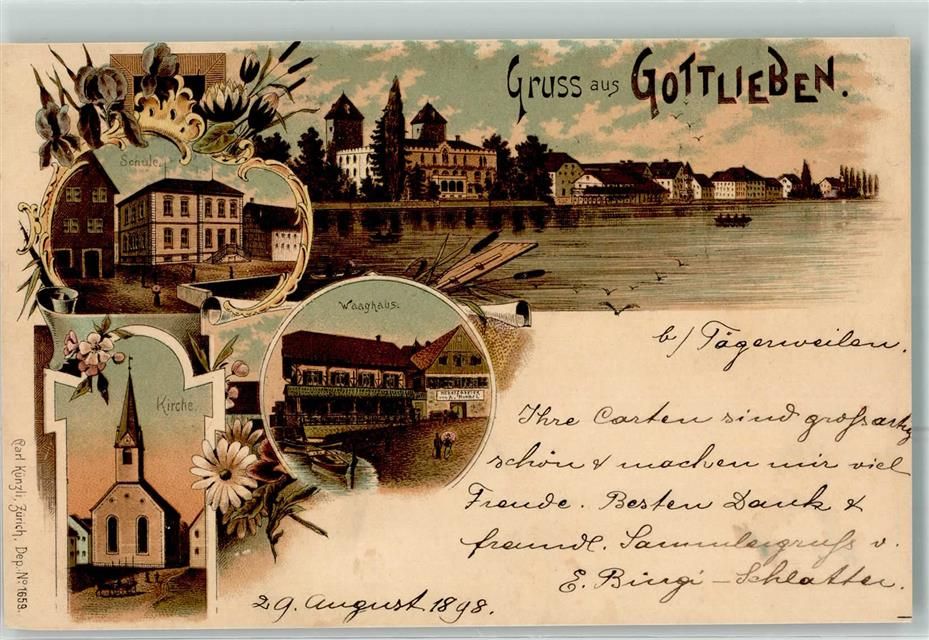 Gruss aus GOTTLIEBEN.
Schule.
Waaghaus.
Kirche.
b/ Tägerweilen.
Ihre Carten sind großartig
schön & machen mir viel
Freude. Besten Dank &
freundl. Sammlergruß v.
E. Bürgi-Schlatter.
29. August 1898.
Carl Künzli, Zürich, Dep. No. 1659.